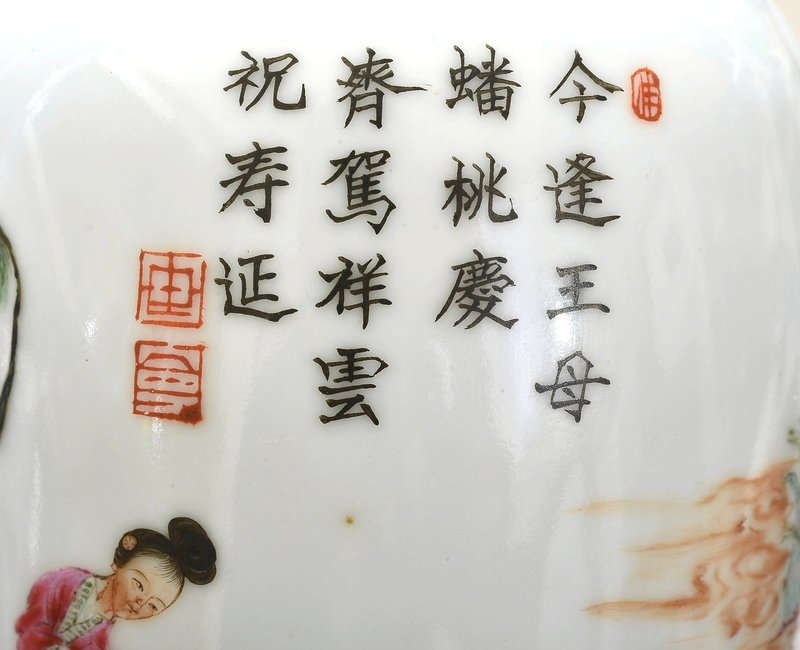 今逢王母
蟠桃慶
齊駕祥雲
祝寿延